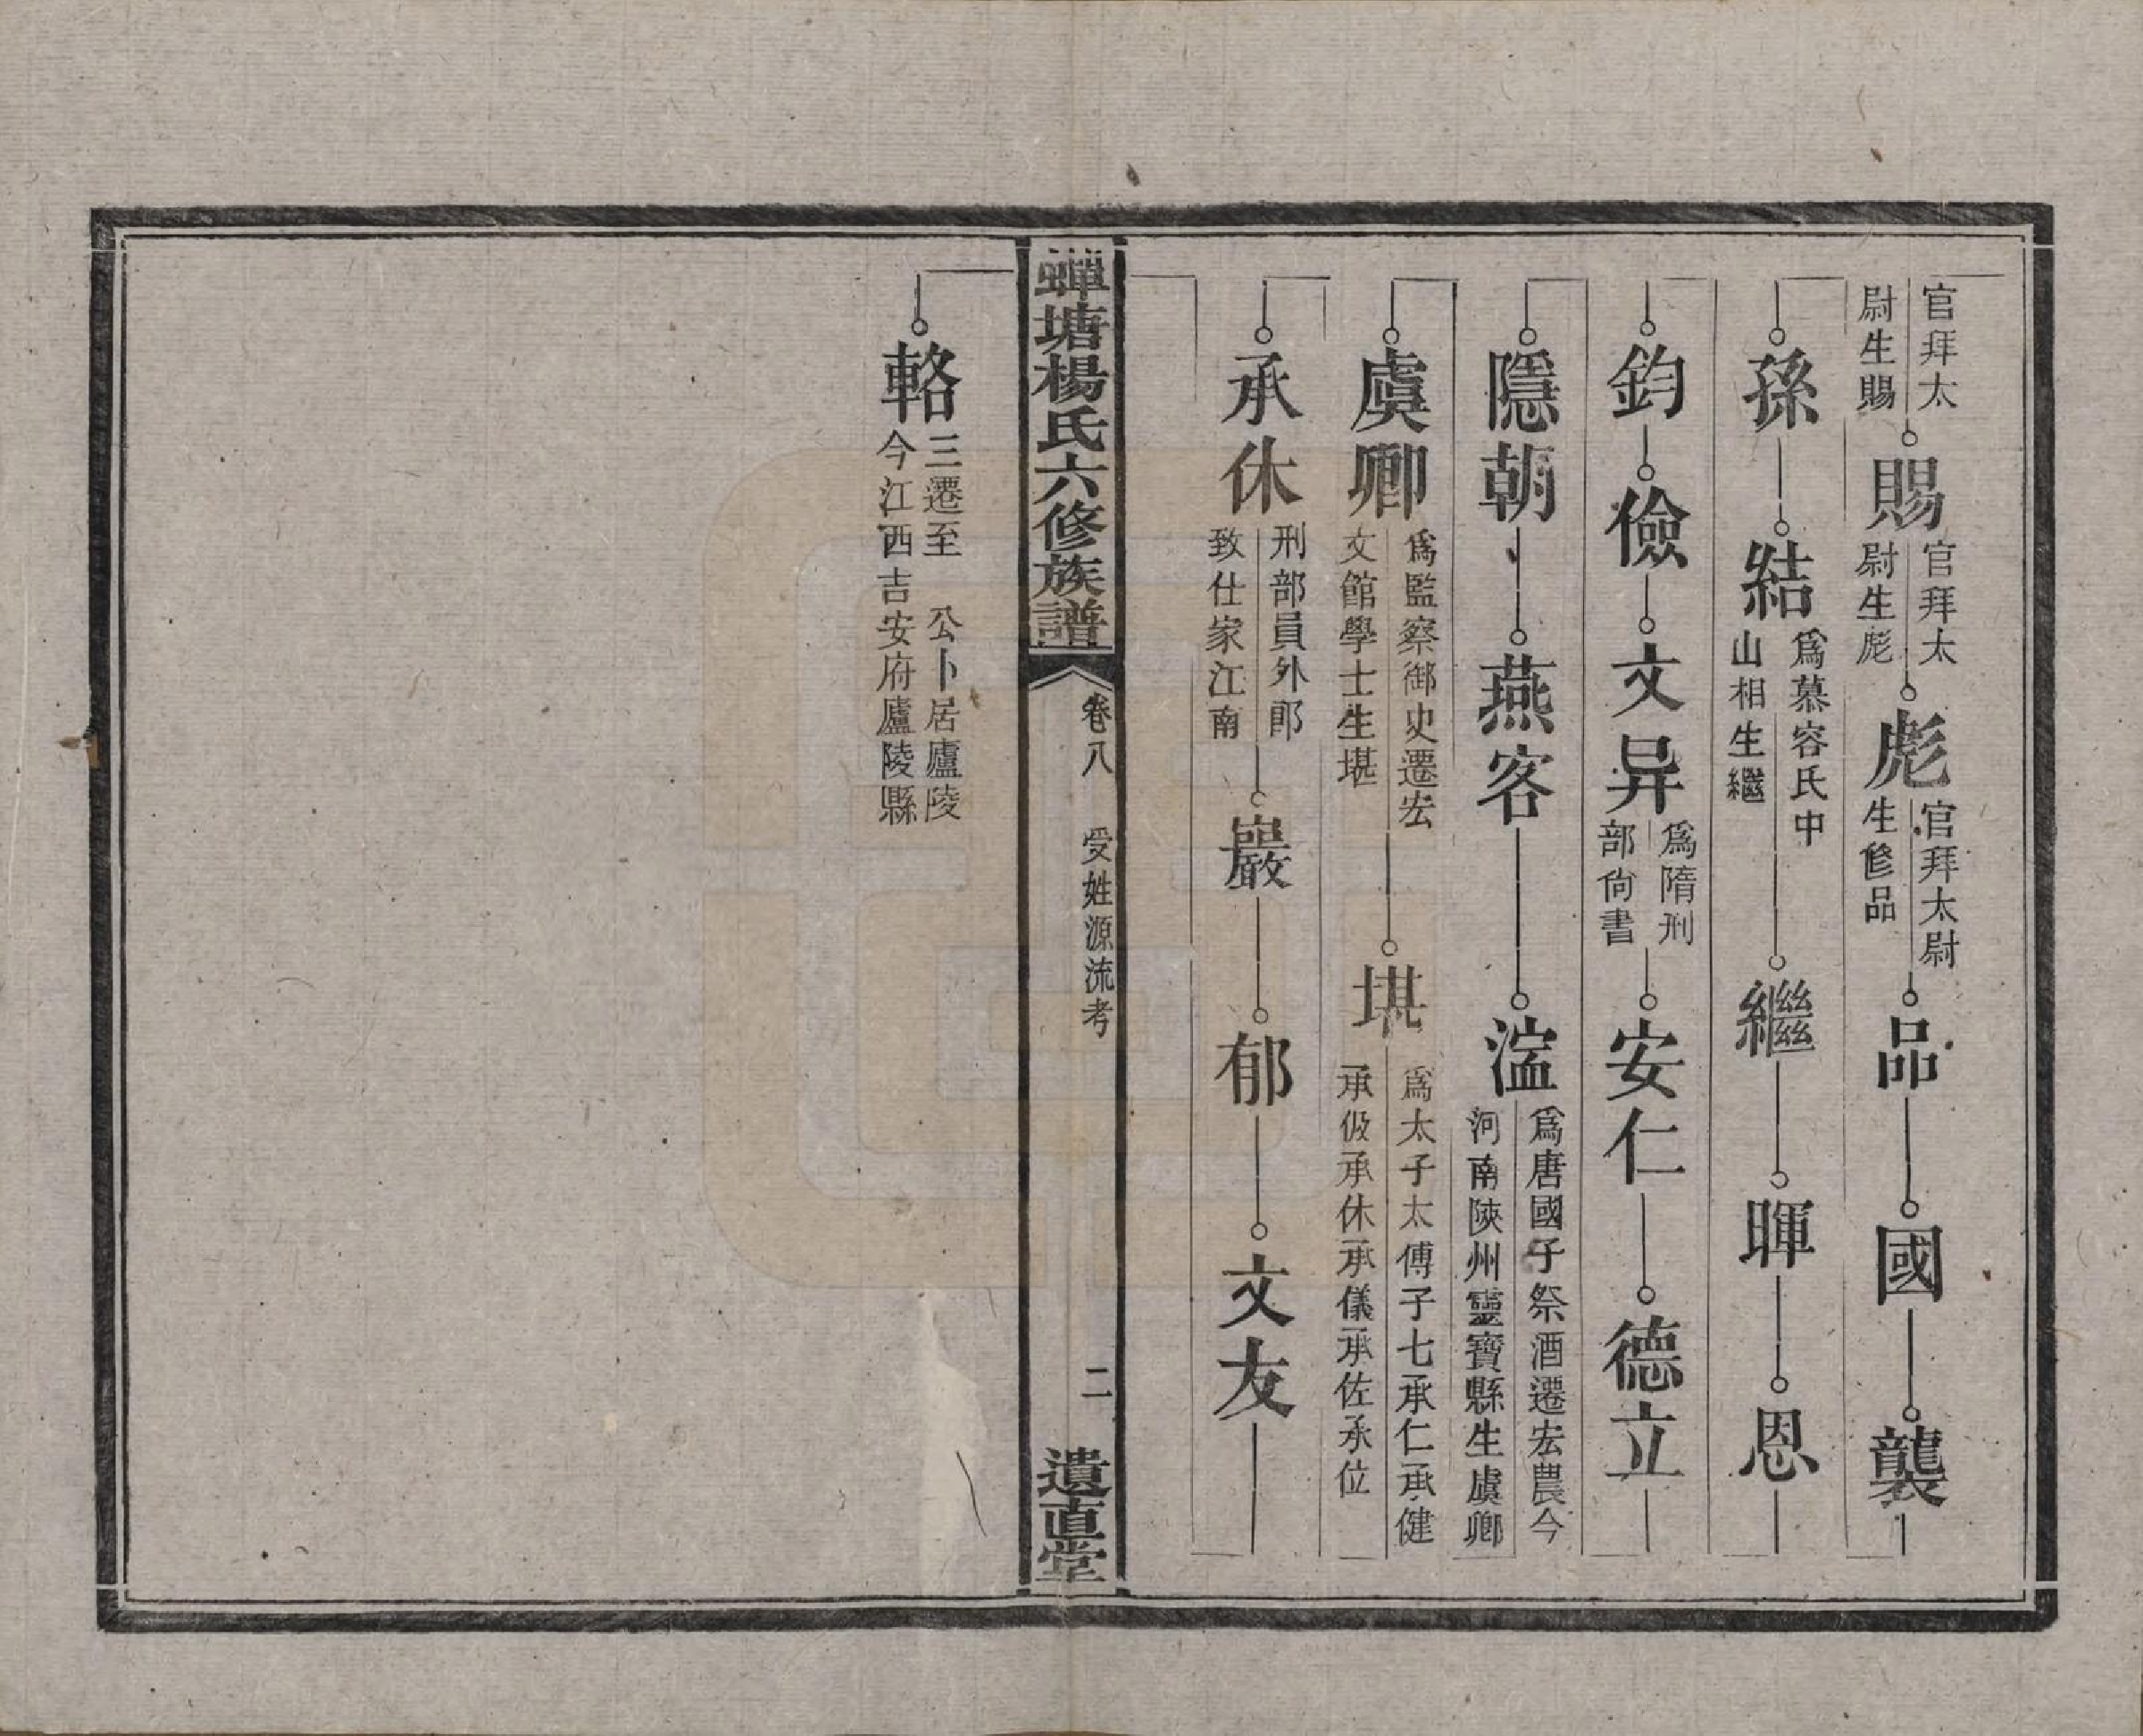 官拜太
尉生賜
賜
官拜太
尉生彪
彪
官拜太尉
生修品
品
國
襲
孫
結
爲慕容氏中
山相生繼
繼
暉
恩
鈞
儉
文异
爲隋刑
部尙書
安仁
德立
隱朝
燕客
溋
爲唐國子祭酒遷宏農今
河南陝州靈寶縣生虞卿
虞卿
爲監察御史遷宏
文館學士生堪
堪
爲太子太傅子七承仁承健
承伋承休承儀承佐承位
承休
刑部員外郎
致仕家江南
巖
郁
文友
蟬塘楊氏六修族譜
卷八
受姓源流考
二
遺直堂
輅
三遷至 公卜居廬陵
今江西吉安府廬陵縣